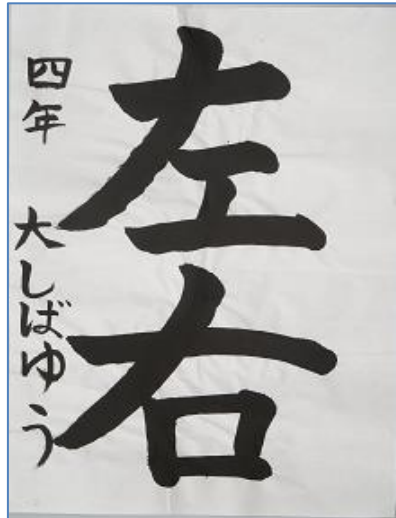 左右
四年 大しばゆう